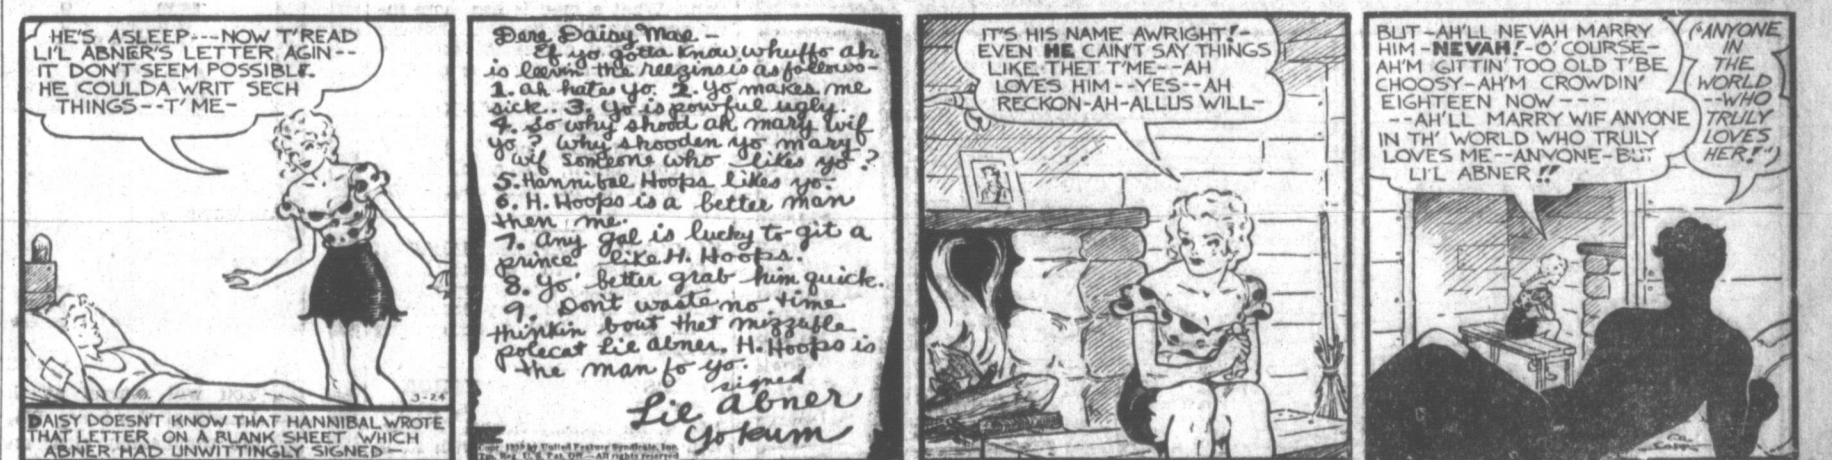 HE'S ASLEEP---NOW T'READ
LI'L ABNER'S LETTER AGIN--
IT DON'T SEEM POSSIBLE
HE COULDA WRIT SECH
THINGS--T' ME-
3-24
DAISY DOESN'T KNOW THAT HANNIBAL WROTE
THAT LETTER ON A BLANK SHEET WHICH
ABNER HAD UNWITTINGLY SIGNED-
Dere Daisy Mae -
Ef yo gotta know whuffo ah
is leevin the reezins is as follows-
1. ah hates yo. 2. Yo makes me
sick.. 3. Yo is powful ugly.
4. So why shood ah mary wif
yo? Why shooden yo mary
wif someone who likes yo?
5. Hannibal Hoops likes yo.
6. H. Hoops is a better man
then me.
7. Any gal is lucky to git a
prince like H. Hoops.
8. Yo' better grab him quick.
9. Don't waste no time
thinkin bout thet mizzuble
polecat Lil abner. H. Hoops is
the man fo yo.
signed
Lil abner
Yokum
Copr. 1939 by United Feature Syndicate, Inc.
Tm. Reg. U. S. Pat. Off.—All rights reserved
IT'S HIS NAME AWRIGHT!-
EVEN HE CAIN'T SAY THINGS
LIKE THET T'ME--AH
LOVES HIM--YES--AH
RECKON-AH-ALLUS WILL-
BUT-AH'LL NEVAH MARRY
HIM-NEVAH!-O' COURSE-
AH'M GITTIN' TOO OLD T'BE
CHOOSY-AH'M CROWDIN'
EIGHTEEN NOW---
--AH'LL MARRY WIF ANYONE
IN TH' WORLD WHO TRULY
LOVES ME--ANYONE-BUT
LI'L ABNER!!
("ANYONE
IN
THE
WORLD
--WHO
TRULY
LOVES
HER!")
AL
CAPP